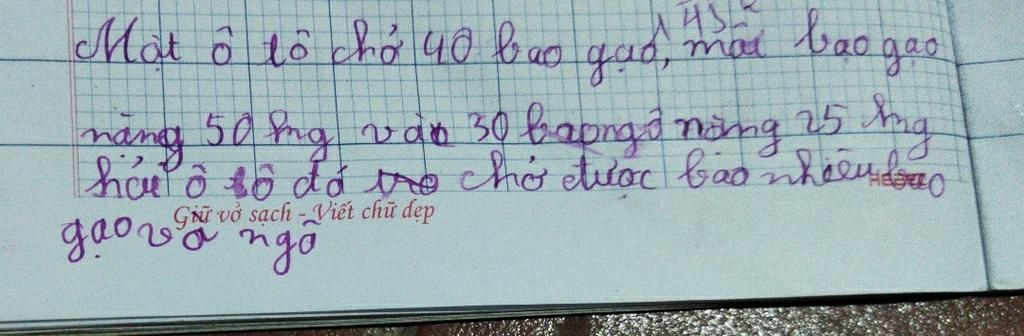 Một ô tô chở 40 bao gạo, mỗi bao gạo
nặng 50 kg và 30 bao ngô nặng 25 kg
hỏi ô tô đó chở được bao nhiêu
gạo và ngô
Giữ vở sạch - Viết chữ đẹp